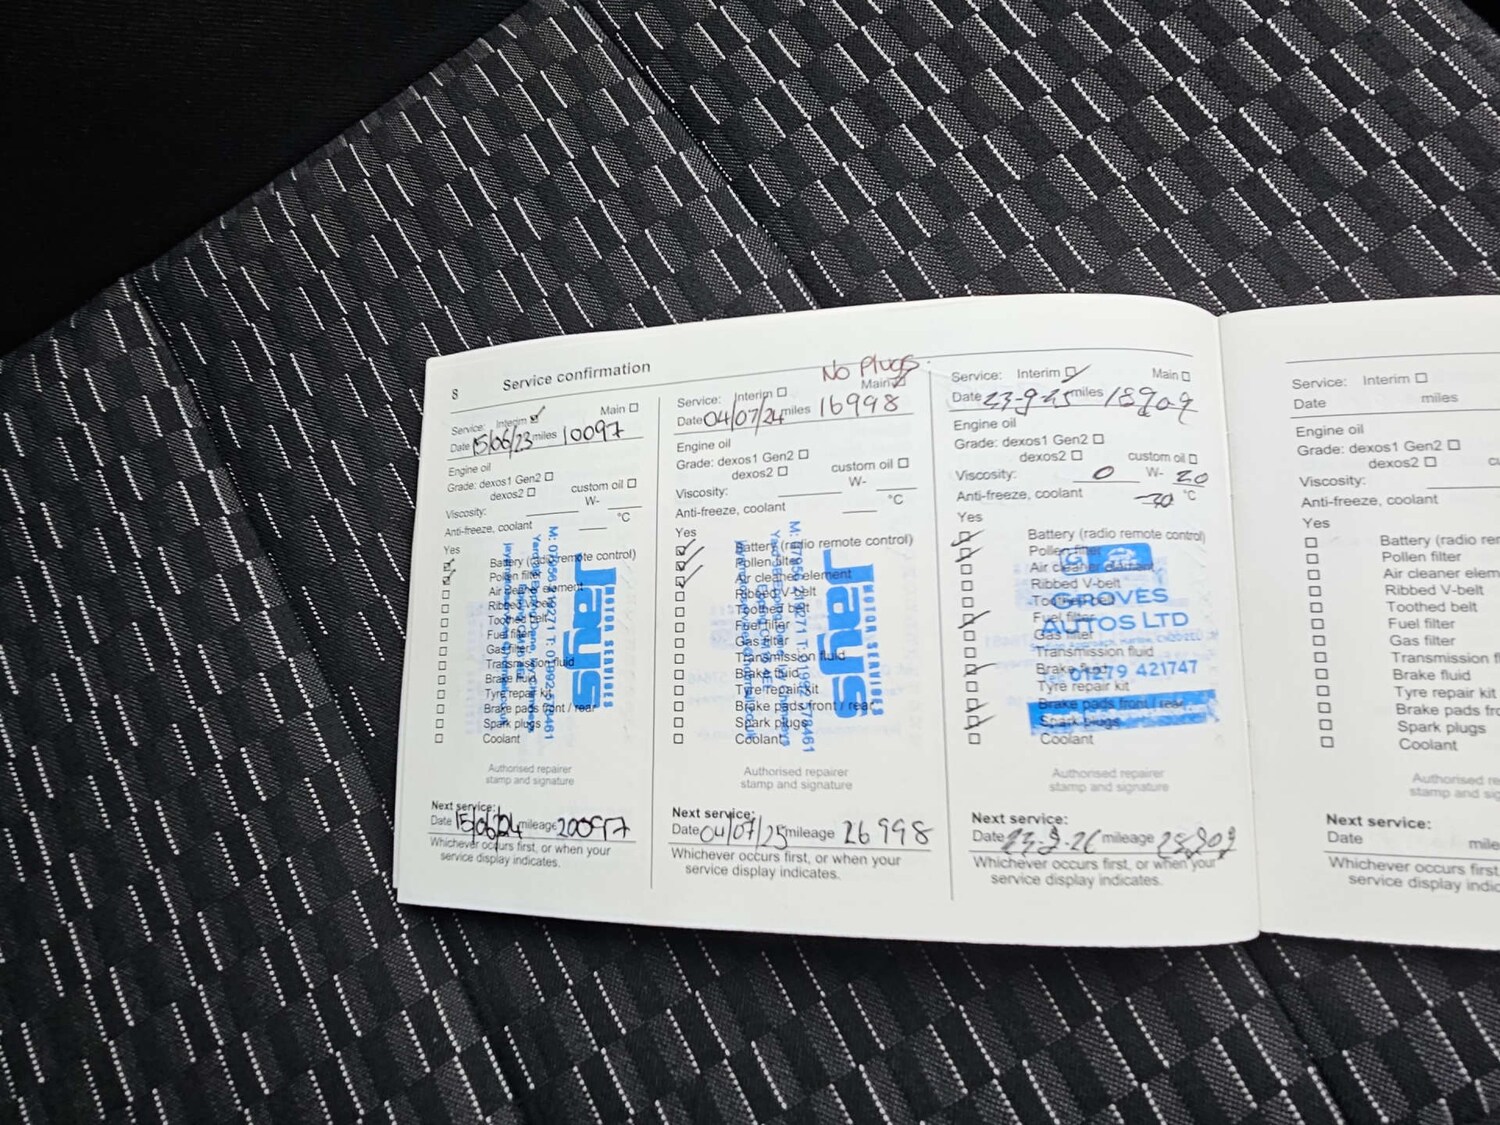 8 Service confirmation
Service: Interim Main
Date 15/06/23 miles 10097
Engine oil
Grade: dexos1 Gen2
dexos2 custom oil
Viscosity: W-
Anti-freeze, coolant °C
Yes
Battery (radio remote control)
Pollen filter
Air cleaner element
Ribbed V-belt
Toothed belt
Fuel filter
Gas filter
Transmission fluid
Brake fluid
Tyre repair kit
Brake pads front / rear
Spark plugs
Coolant
Jays
MOTOR SERVICES
Authorised repairer
stamp and signature
Next service:
Date 15/06/24 mileage 20097
Whichever occurs first, or when your
service display indicates.
No Plugs
Service: Interim Main
Date 04/07/24 miles 16998
Engine oil
Grade: dexos1 Gen2
dexos2 custom oil
Viscosity: W-
Anti-freeze, coolant °C
Yes
Battery (radio remote control)
Pollen filter
Air cleaner element
Ribbed V-belt
Toothed belt
Fuel filter
Gas filter
Transmission fluid
Brake fluid
Tyre repair kit
Brake pads front / rear
Spark plugs
Coolant
Jays
MOTOR SERVICES
Authorised repairer
stamp and signature
Next service:
Date 04/07/25 mileage 26998
Whichever occurs first, or when your
service display indicates.
Service: Interim Main
Date 23-9-25 miles 18909
Engine oil
Grade: dexos1 Gen2
dexos2 custom oil
Viscosity: 0 W- 20
Anti-freeze, coolant -30 °C
Yes
Battery (radio remote control)
Pollen filter
Air cleaner element
Ribbed V-belt
Toothed belt
Fuel filter
Gas filter
Transmission fluid
Brake fluid
Tyre repair kit
Brake pads front / rear
Spark plugs
Coolant
GROVES
AUTOS LTD
01279 421747
Authorised repairer
stamp and signature
Next service:
Date 23-9-26 mileage
Whichever occurs first, or when your
service display indicates.
Service: Interim
Date miles
Engine oil
Grade: dexos1 Gen2
dexos2
Viscosity:
Anti-freeze, coolant
Yes
Battery (radio rem
Pollen filter
Air cleaner elem
Ribbed V-belt
Toothed belt
Fuel filter
Gas filter
Transmission f
Brake fluid
Tyre repair kit
Brake pads fro
Spark plugs
Coolant
Authorised re
stamp and sig
Next service:
Date mile
Whichever occurs first
service display indic